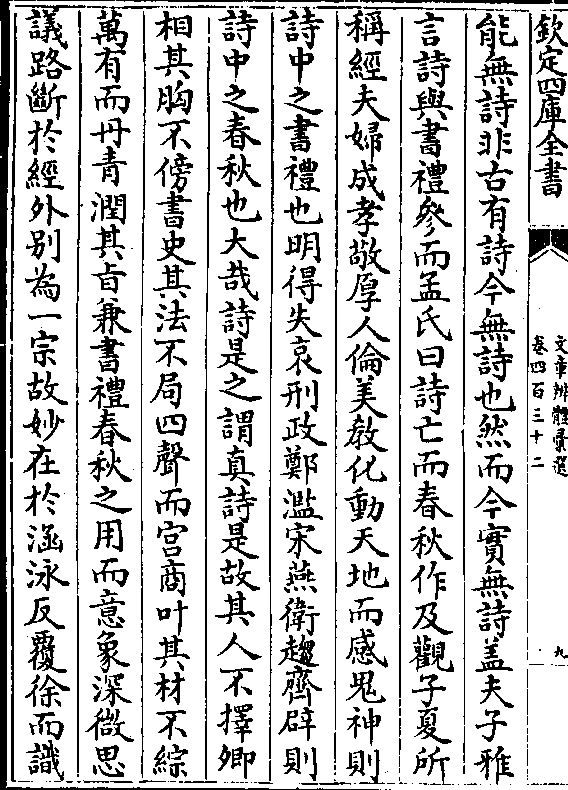 欽定四庫全書
文章辨體彙選
卷四百三十二
九
能無詩非古有詩今無詩也然而今實無詩盖夫子雅
言詩與書禮參而孟氏曰詩亡而春秋作及觀子夏所
稱經夫婦成孝敬厚人倫美教化動天地而感鬼神則
詩中之書禮也明得失哀刑政鄭濫宋燕衛趨齊辟則
詩中之春秋也大哉詩是之謂真詩是故其人不擇卿
相其胸不傍書史其法不局四聲而宫商叶其材不綜
萬有而丹青潤其㫖兼書禮春秋之用而意象深微思
議路斷於經外别為一宗故妙在於涵泳反覆徐而識